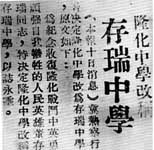 隆化中學改稱
存瑞中學
（本報十日消息）冀熱察行
決定隆化中學改為存瑞中
，原文如下：
為紀念收復隆化戰鬥中英勇
頑強自我犧牲的人民英雄董存
瑞同志，特決定隆化中學改稱
存瑞中學，以誌永垂。